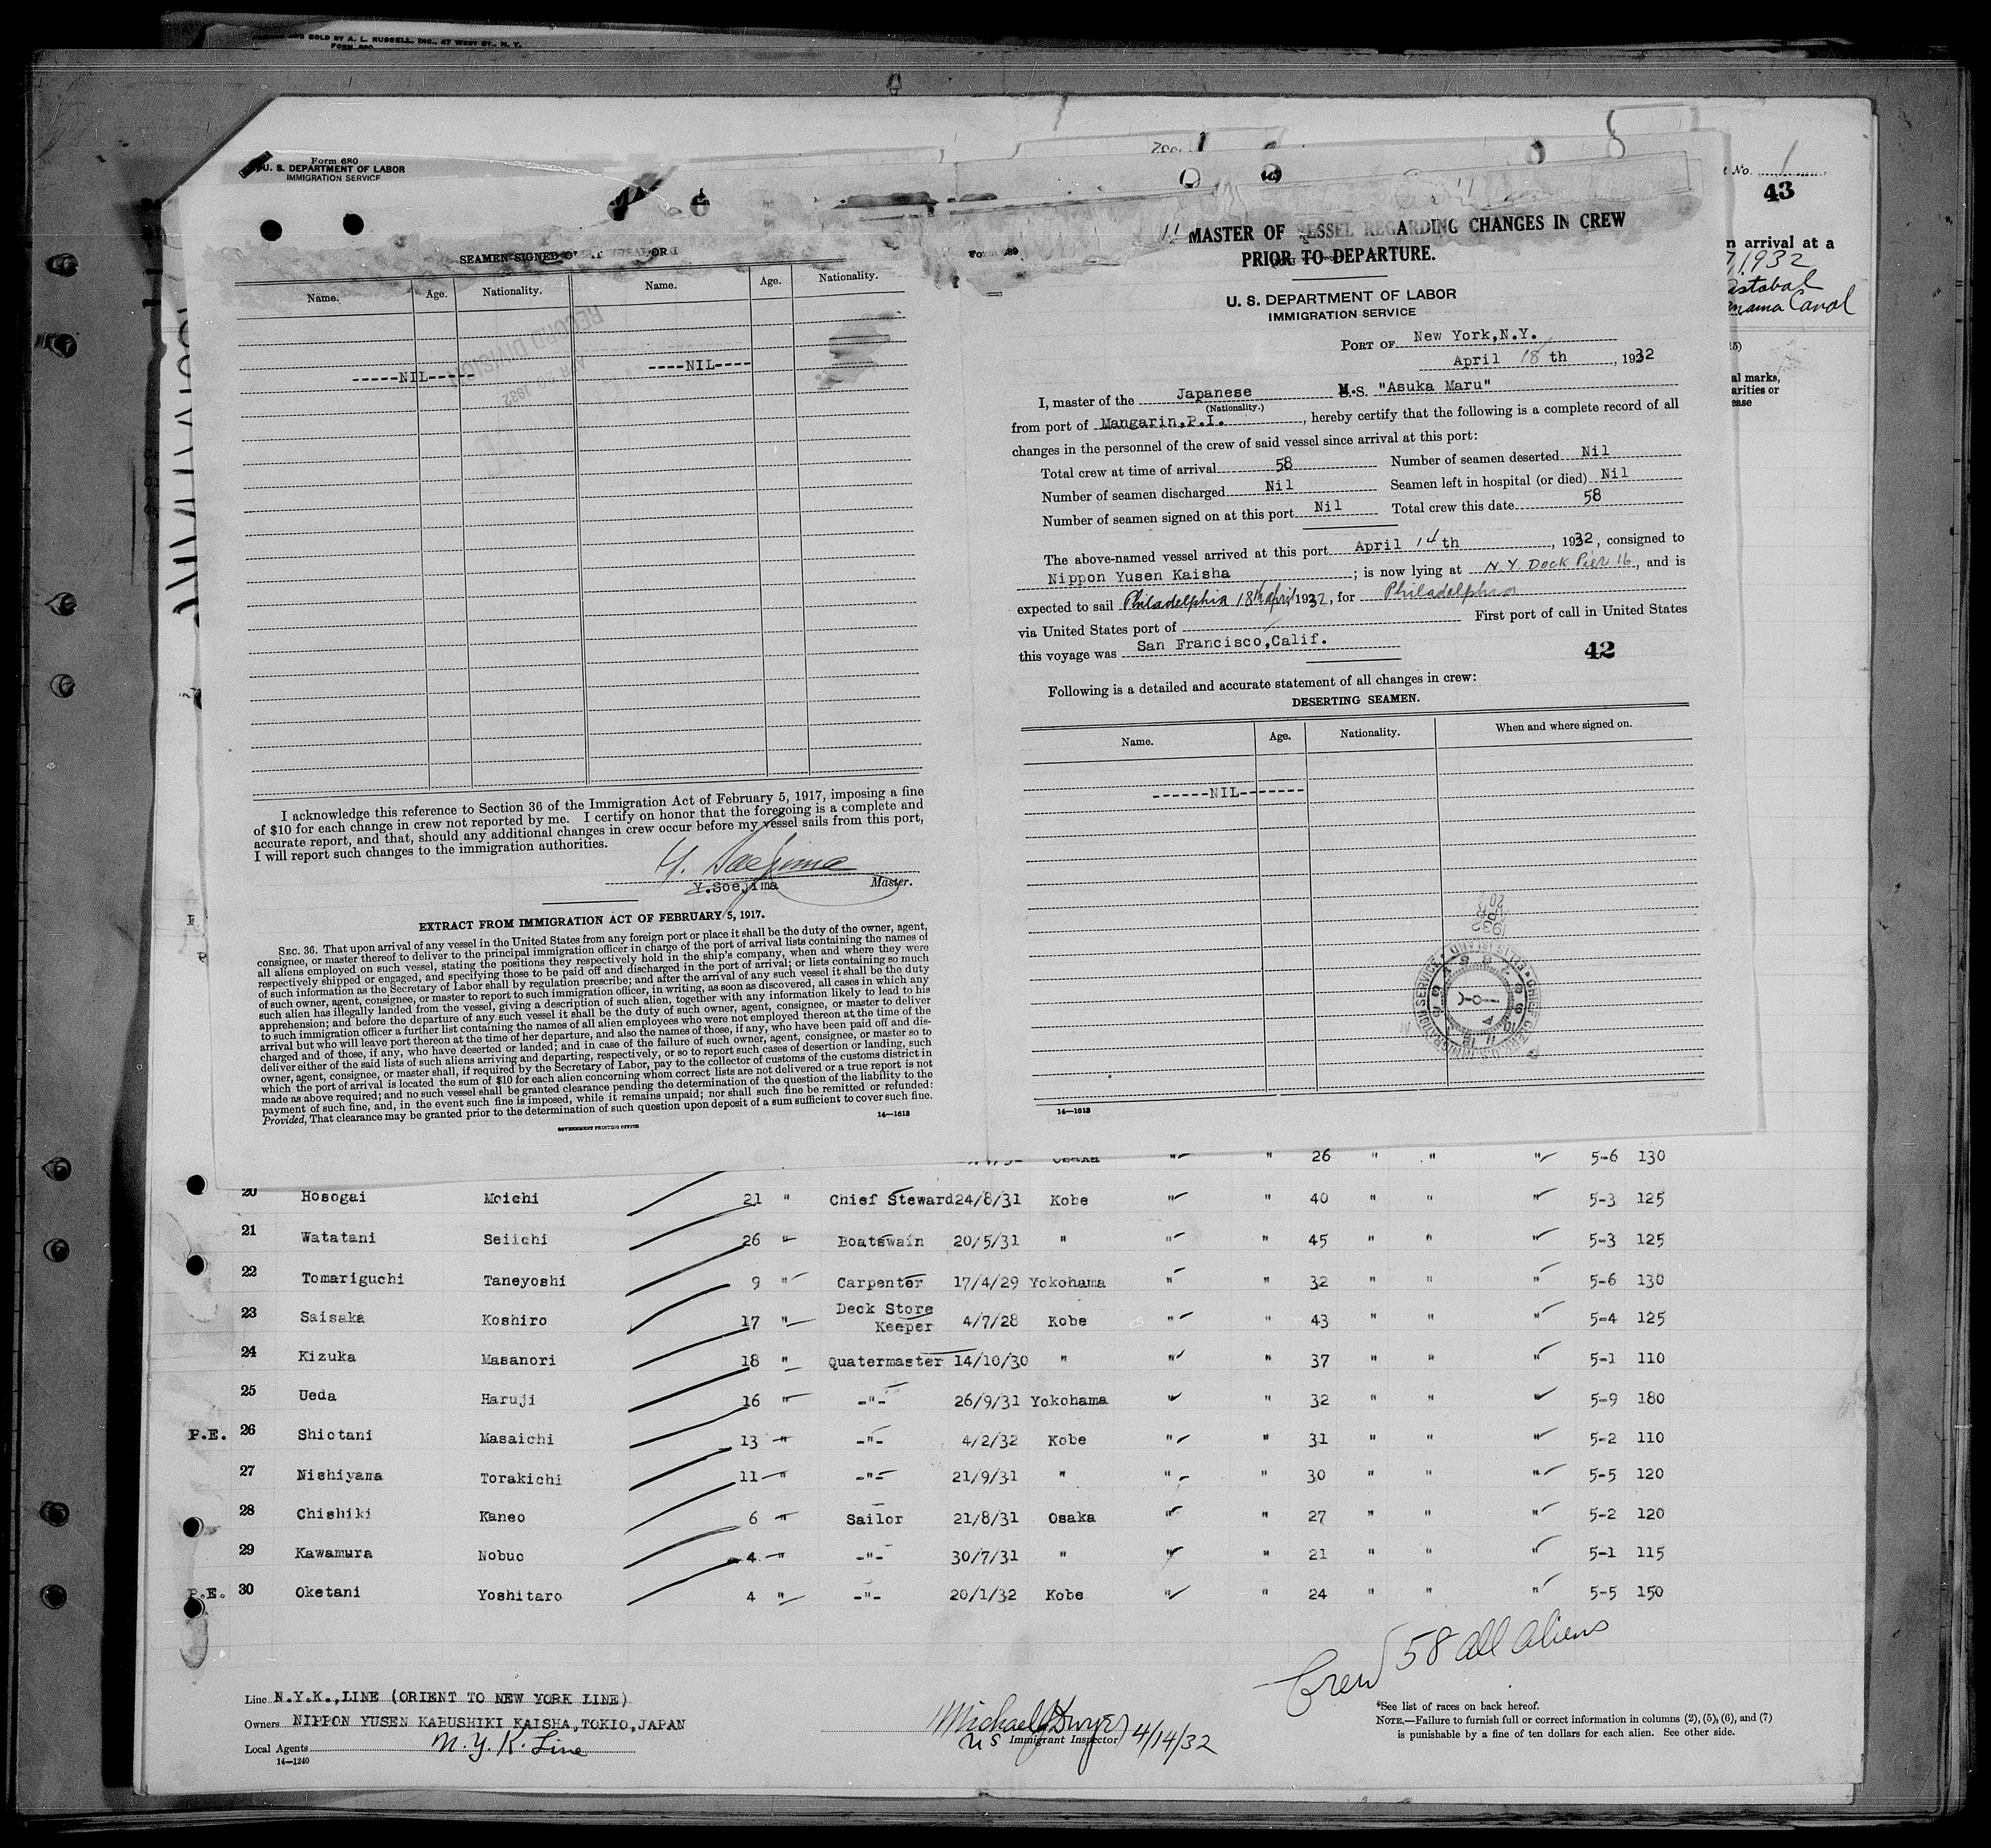 AND SOLD BY A. L. RUSSELL, INC., 47 WEST ST., N. Y.
FORM 680
Form 680
U. S. DEPARTMENT OF LABOR
IMMIGRATION SERVICE
SEAMEN SIGNED
Name. Age. Nationality. Name. Age. Nationality.
-----NIL----- ----NIL----
RECORD DIVISION
1932
I acknowledge this reference to Section 36 of the Immigration Act of February 5, 1917, imposing a fine
of $10 for each change in crew not reported by me. I certify on honor that the foregoing is a complete and
accurate report, and that, should any additional changes in crew occur before my vessel sails from this port,
I will report such changes to the immigration authorities.
Y. Soejima
Y.Soejima Master.
EXTRACT FROM IMMIGRATION ACT OF FEBRUARY 5, 1917.
SEC. 36. That upon arrival of any vessel in the United States from any foreign port or place it shall be the duty of the owner, agent,
consignee, or master thereof to deliver to the principal immigration officer in charge of the port of arrival lists containing the names of
all aliens employed on such vessel, stating the positions they respectively hold in the ship's company, when and where they were
respectively shipped or engaged, and specifying those to be paid off and discharged in the port of arrival; or lists containing so much
of such information as the Secretary of Labor shall by regulation prescribe; and after the arrival of any such vessel it shall be the duty
of such owner, agent, consignee, or master to report to such immigration officer, in writing, as soon as discovered, all cases in which any
such alien has illegally landed from the vessel, giving a description of such alien, together with any information likely to lead to his
apprehension; and before the departure of any such vessel it shall be the duty of such owner, agent, consignee, or master to deliver
to such immigration officer a further list containing the names of all alien employees who were not employed thereon at the time of the
arrival but who will leave port thereon at the time of her departure, and also the names of those, if any, who have been paid off and dis-
charged and of those, if any, who have deserted or landed; and in case of the failure of such owner, agent, consignee, or master so to
deliver either of the said lists of such aliens arriving and departing, respectively, or so to report such cases of desertion or landing, such
owner, agent, consignee, or master shall, if required by the Secretary of Labor, pay to the collector of customs of the customs district in
which the port of arrival is located the sum of $10 for each alien concerning whom correct lists are not delivered or a true report is not
made as above required; and no such vessel shall be granted clearance pending the determination of the question of the liability to the
payment of such fine, and, in the event such fine is imposed, while it remains unpaid; nor shall such fine be remitted or refunded:
Provided, That clearance may be granted prior to the determination of such question upon deposit of a sum sufficient to cover such fine.
14—1613
GOVERNMENT PRINTING OFFICE
MASTER OF VESSEL REGARDING CHANGES IN CREW
PRIOR TO DEPARTURE.
U. S. DEPARTMENT OF LABOR
IMMIGRATION SERVICE
PORT OF New York,N.Y.
April 18 th , 1932
I, master of the Japanese M.S. "Asuka Maru"
(Nationality.)
from port of Mangarin,P.I. , hereby certify that the following is a complete record of all
changes in the personnel of the crew of said vessel since arrival at this port:
Total crew at time of arrival 58 Number of seamen deserted Nil
Number of seamen discharged Nil Seamen left in hospital (or died) Nil
Number of seamen signed on at this port Nil Total crew this date 58
The above-named vessel arrived at this port April 14 th , 1932, consigned to
Nippon Yusen Kaisha ; is now lying at N.Y. Dock Pier 16, and is
expected to sail Philadelphia 18th April 1932, for Philadelphia
via United States port of First port of call in United States
this voyage was San Francisco,Calif.
42
Following is a detailed and accurate statement of all changes in crew:
DESERTING SEAMEN.
Name. Age. Nationality. When and where signed on.
------NIL-------
14—1613
No. 1
43
n arrival at a
1932
Panama Canal
al marks,
arities or
ease
Osaka " " 26 " " " 5-6 130
20 Hosogai Moichi 21 " Chief Steward 24/8/31 Kobe " " 40 " " " 5-3 125
21 Watatani Seiichi 26 " Boatswain 20/5/31 " " " 45 " " " 5-3 125
22 Tomariguchi Taneyoshi 9 " Carpenter 17/4/29 Yokohama " " 32 " " " 5-6 130
23 Saisaka Koshiro 17 " Deck Store Keeper 4/7/28 Kobe " " 43 " " " 5-4 125
24 Kizuka Masanori 18 " Quatermaster 14/10/30 " " " 37 " " " 5-1 110
25 Ueda Haruji 16 " -"- 26/9/31 Yokohama " " 32 " " " 5-9 180
P.E. 26 Shiotani Masaichi 13 " -"- 4/2/32 Kobe " " 31 " " " 5-2 110
27 Nishiyama Torakichi 11 " -"- 21/9/31 " " " 30 " " " 5-5 120
28 Chishiki Kaneo 6 " Sailor 21/8/31 Osaka " " 27 " " " 5-2 120
29 Kawamura Nobuo 4 " -"- 30/7/31 " " " 21 " " " 5-1 115
P.E. 30 Oketani Yoshitaro 4 " -"- 20/1/32 Kobe " " 24 " " " 5-5 150
Crew 58 all aliens
Line N.Y.K.,LINE (ORIENT TO NEW YORK LINE)
Owners NIPPON YUSEN KABUSHIKI KAISHA,TOKIO,JAPAN
Local Agents N.Y.K. Line
14—1240
Michael J Dwyer
US Immigrant Inspector 4/14/32
*See list of races on back hereof.
NOTE.—Failure to furnish full or correct information in columns (2), (5), (6), and (7)
is punishable by a fine of ten dollars for each alien. See other side.